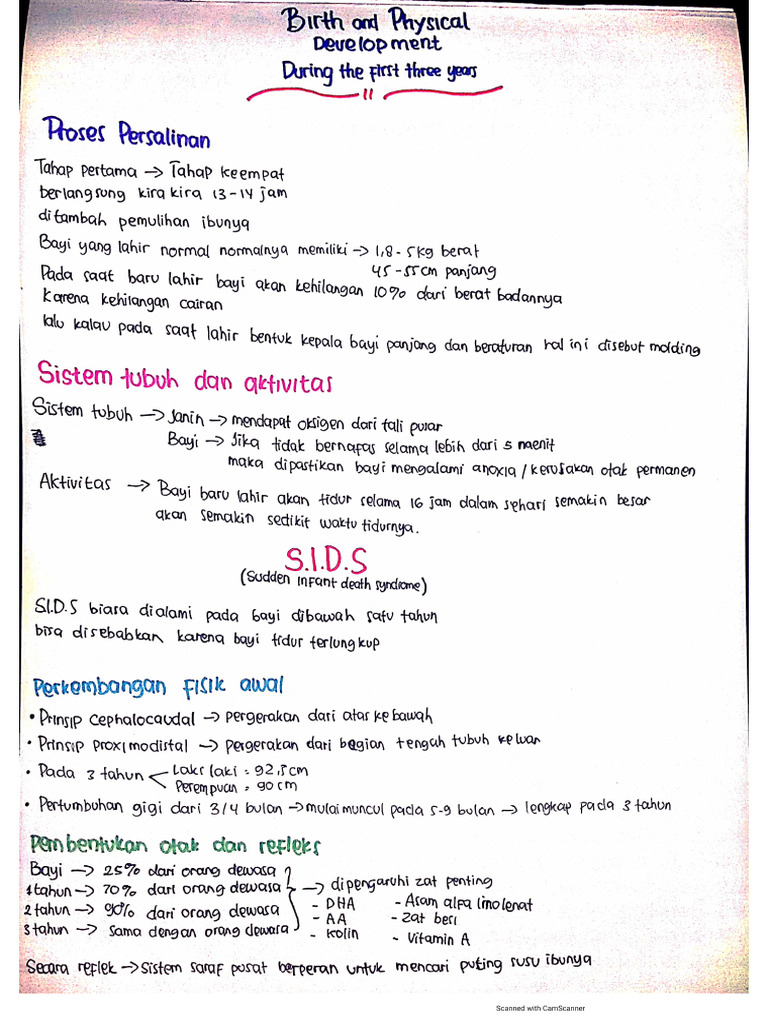 Birth and Physical
Development
During the first three years
Proses Persalinan
Tahap pertama → Tahap keempat
berlangsung kira kira 13-14 jam
ditambah pemulihan ibunya
Bayi yang lahir normal normalnya memiliki → 1,8 - 5 kg berat
45 - 55 cm panjang
Pada saat baru lahir bayi akan kehilangan 10% dari berat badannya
karena kehilangan cairan
lalu kalau pada saat lahir bentuk kepala bayi panjang dan beraturan hal ini disebut molding
Sistem tubuh dan aktivitas
Sistem tubuh → Janin → mendapat oksigen dari tali pusar
Bayi → Jika tidak bernapas selama lebih dari 5 menit
maka dipastikan bayi mengalami anoxia / kerusakan otak permanen
Aktivitas → Bayi baru lahir akan tidur selama 16 jam dalam sehari semakin besar
akan semakin sedikit waktu tidurnya.
S.I.D.S
(Sudden infant death syndrome)
S.I.D.S biasa dialami pada bayi dibawah satu tahun
bisa disebabkan karena bayi tidur terlungkup
Perkembangan fisik awal
• Prinsip cephalocaudal → pergerakan dari atas kebawah
• Prinsip proximodistal → pergerakan dari bagian tengah tubuh keluar
• Pada 3 tahun < Laki laki = 92,5 cm
Perempuan = 90 cm
• Pertumbuhan gigi dari 3/4 bulan → mulai muncul pada 5-9 bulan → lengkap pada 3 tahun
Pembentukan otak dan refleks
Bayi → 25% dari orang dewasa
1 tahun → 70% dari orang dewasa → dipengaruhi zat penting
2 tahun → 90% dari orang dewasa - DHA - Asam alpa linolenat
3 tahun → sama dengan orang dewasa - AA - Zat besi
- Kolin - Vitamin A
Secara reflek → Sistem saraf pusat berperan untuk mencari puting susu ibunya
Scanned with CamScanner